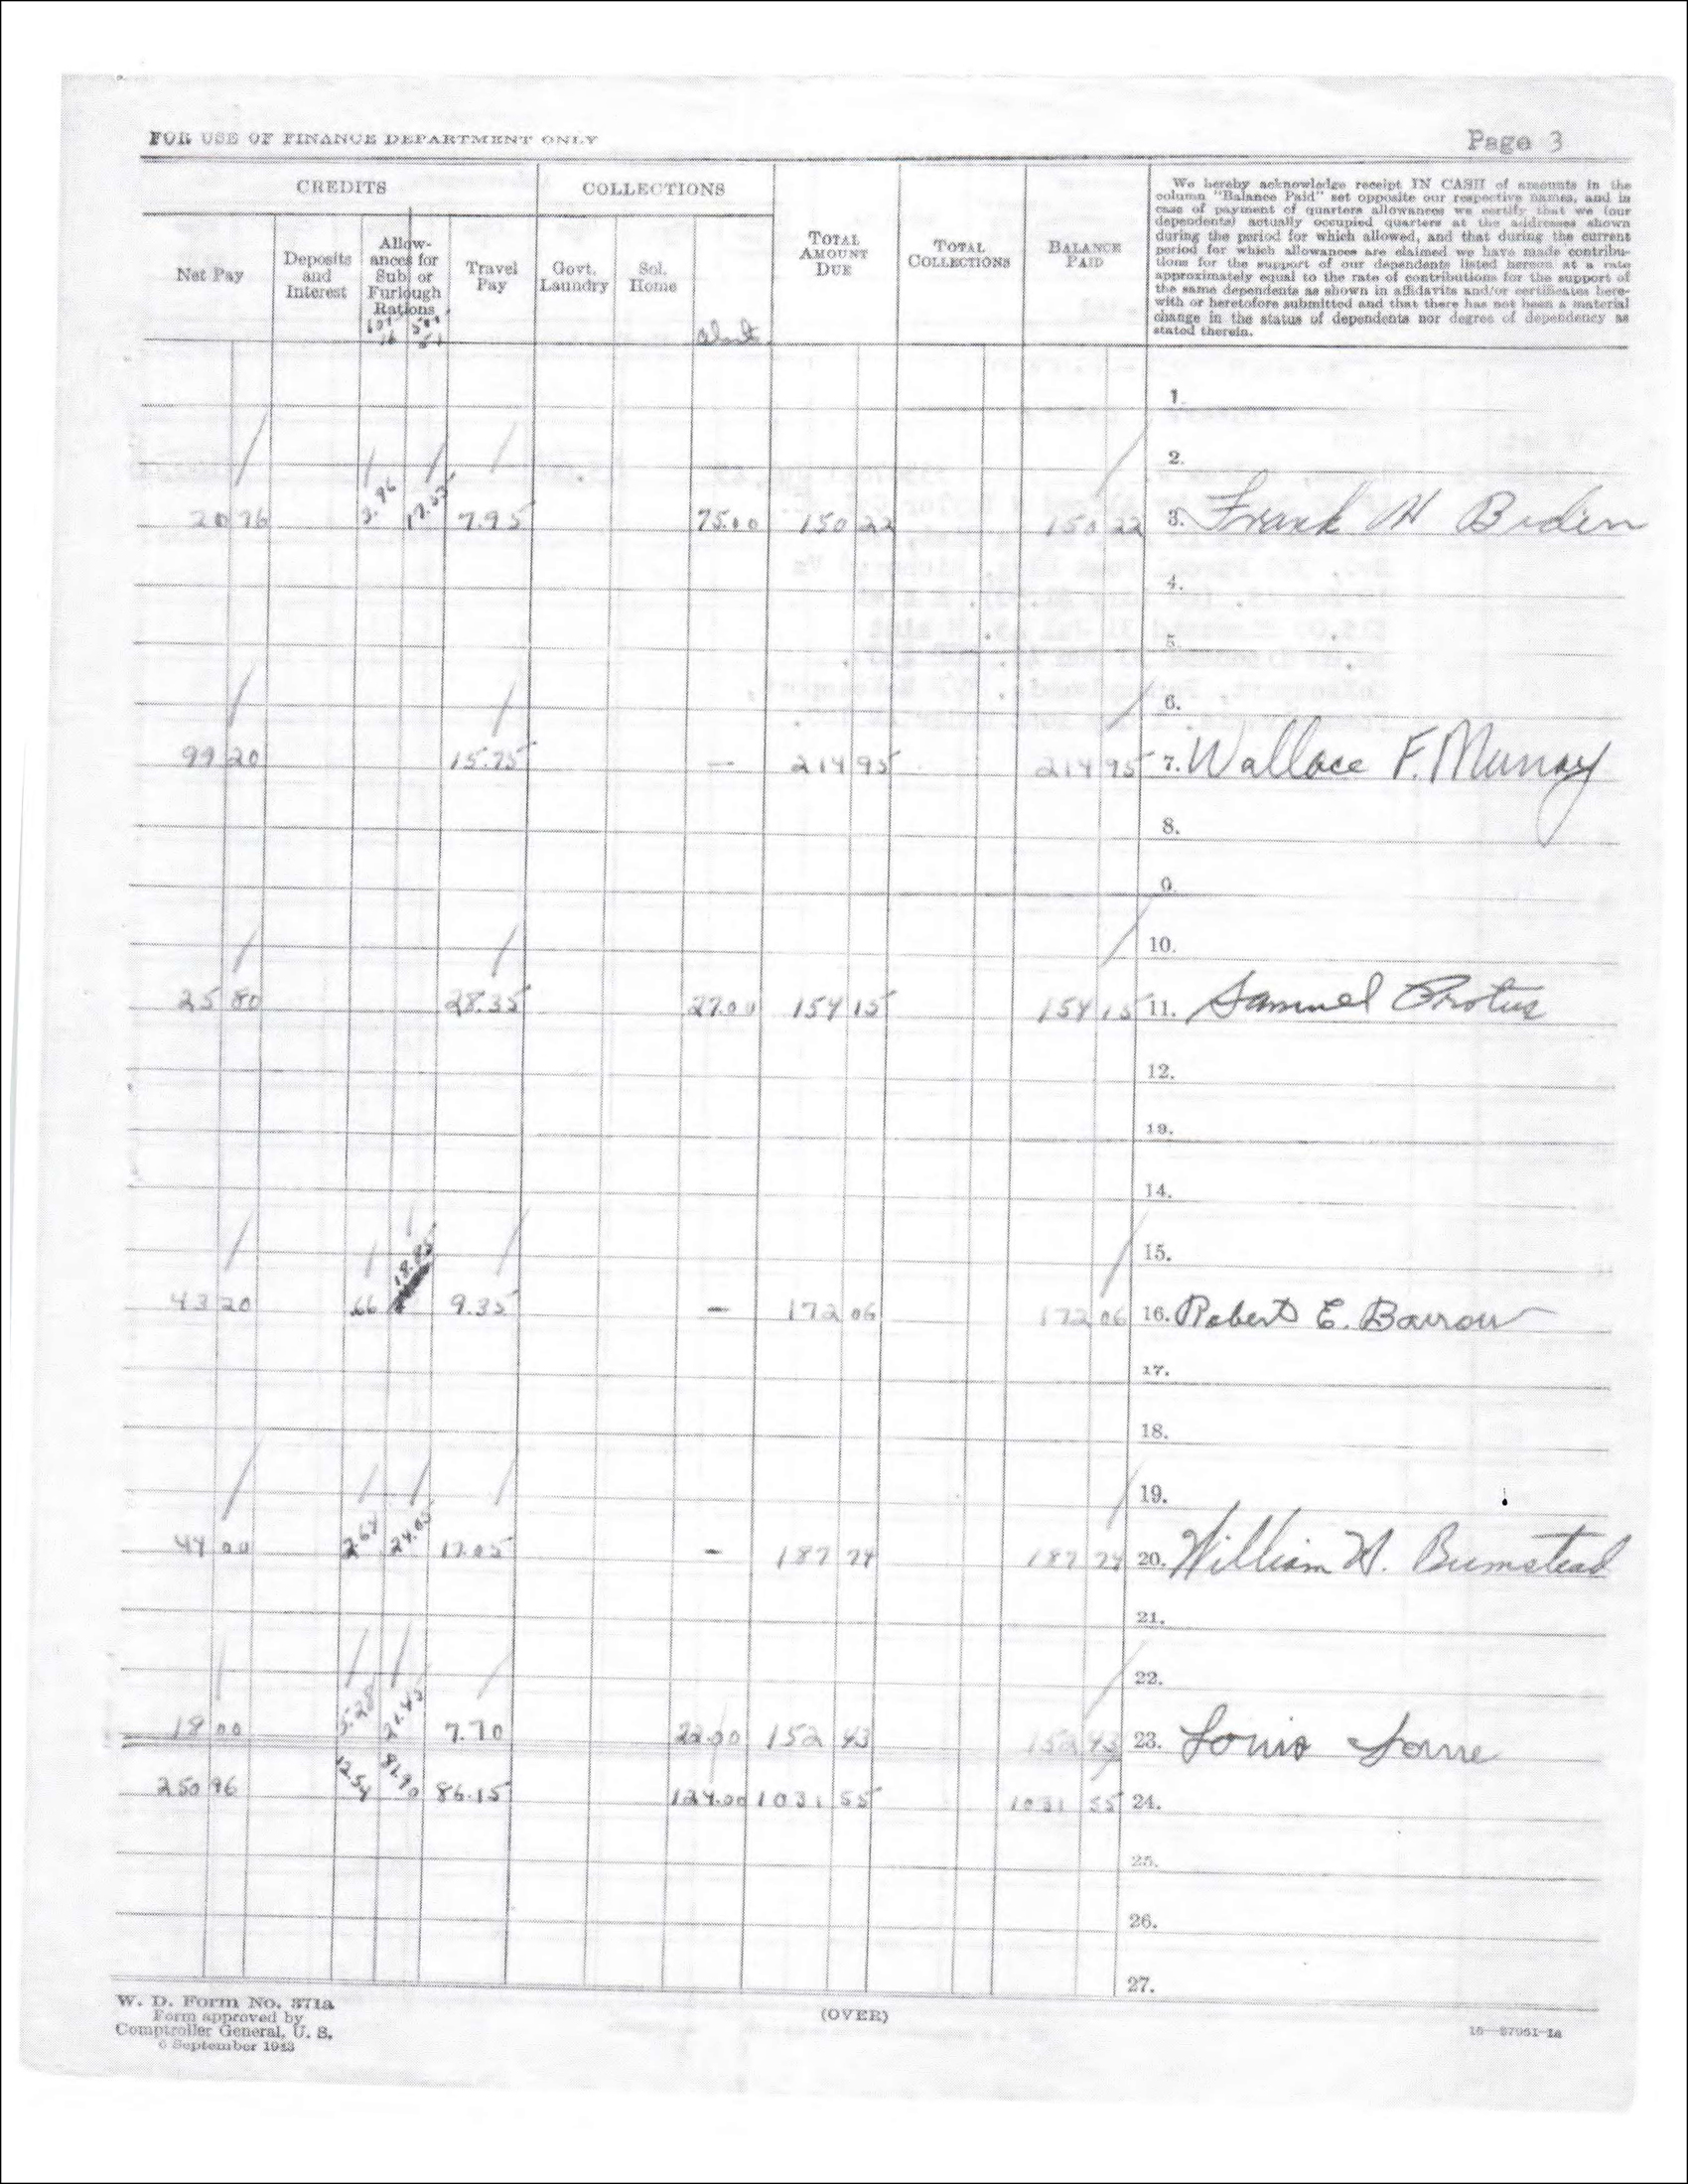 FOR USE OF FINANCE DEPARTMENT ONLY
Page 3
CREDITS
COLLECTIONS
Net Pay
Deposits and Interest
Allowances for Sub. or Furlough Rations
Travel Pay
Govt. Laundry
Sol. Home
TOTAL AMOUNT DUE
TOTAL COLLECTIONS
BALANCE PAID
We hereby acknowledge receipt IN CASH of amounts in the
column "Balance Paid" set opposite our respective names, and in
case of payment of quarters allowances we certify that we (our
dependents) actually occupied quarters at the addresses shown
during the period for which allowed, and that during the current
period for which allowances are claimed we have made contribu-
tions for the support of our dependents listed hereon at a rate
approximately equal to the rate of contributions for the support of
the same dependents as shown in affidavits and/or certificates here-
with or heretofore submitted and that there has not been a material
change in the status of dependents nor degree of dependency as
stated therein.
1.
2.
20 76 3.96 17.55 7.95 75.00 150 22 150 22 3. Frank H Biden
4.
5.
6.
99 20 15.75 — 214 95 214 95 7. Wallace F. Murray
8.
9.
10.
25 80 28.35 27.00 154 15 154 15 11. Samuel Protus
12.
13.
14.
15.
43 20 .66 18.85 9.35 — 172 06 172 06 16. Robert E. Barrow
17.
18.
19.
44 00 2.64 24.05 17.05 - 187 74 187 74 20. William W. Bumstead
21.
22.
18 00 5.28 21.45 7.70 22.00 152 43 152 43 23. Louis
250 96 12.54 81.90 86.15 124.00 1031 55 1031 55 24.
25.
26.
27.
W. D. Form No. 371a
Form approved by
Comptroller General, U. S.
6 September 1943
(OVER)
16—37061-1a